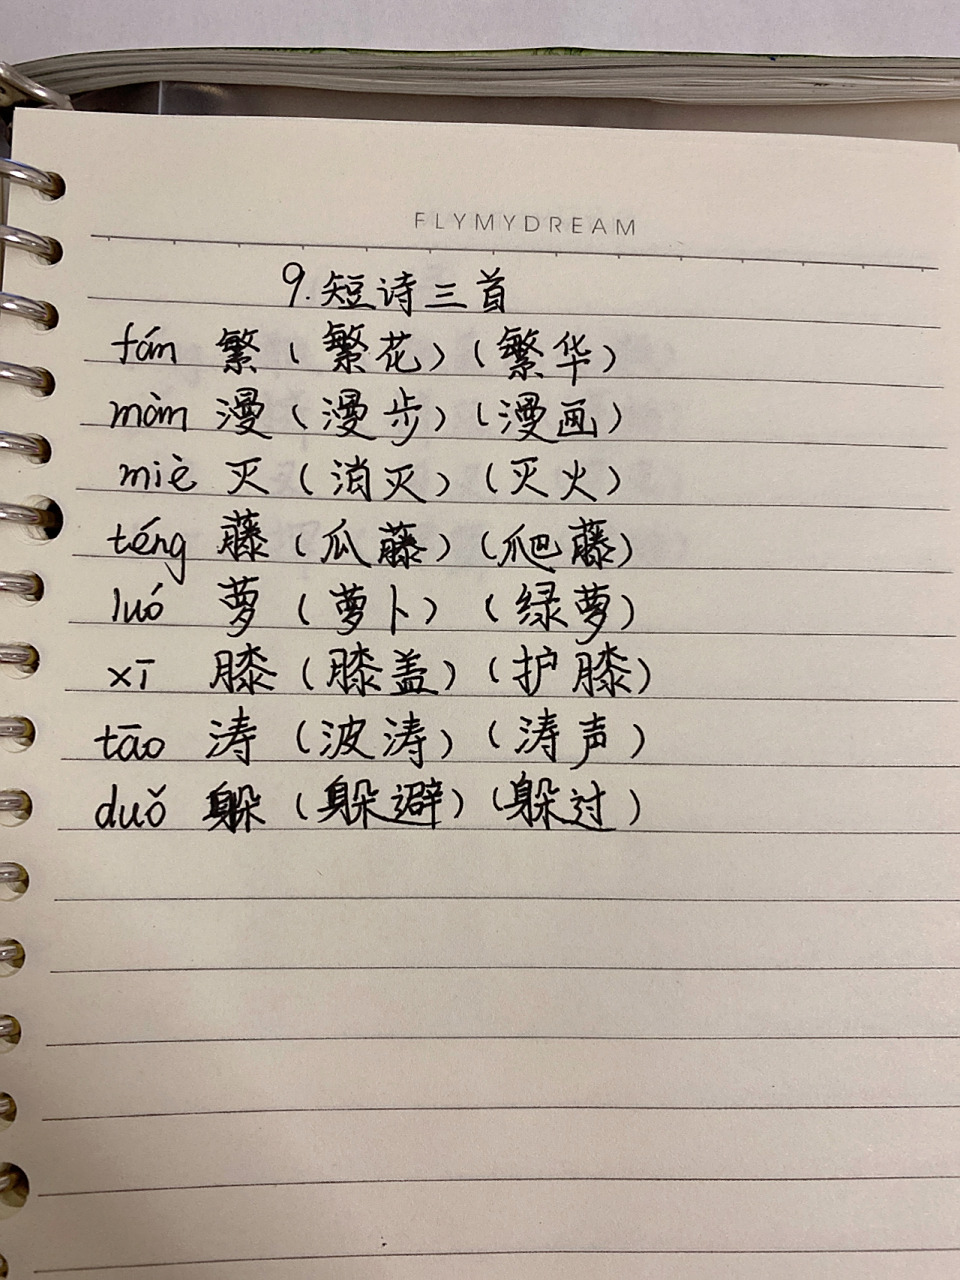 FLYMYDREAM
9.短诗三首
fán 繁（繁花）（繁华）
màn 漫（漫步）（漫画）
miè 灭（消灭）（灭火）
téng 藤（瓜藤）（爬藤）
luó 萝（萝卜）（绿萝）
xī 膝（膝盖）（护膝）
tāo 涛（波涛）（涛声）
duǒ 躲（躲避）（躲过）